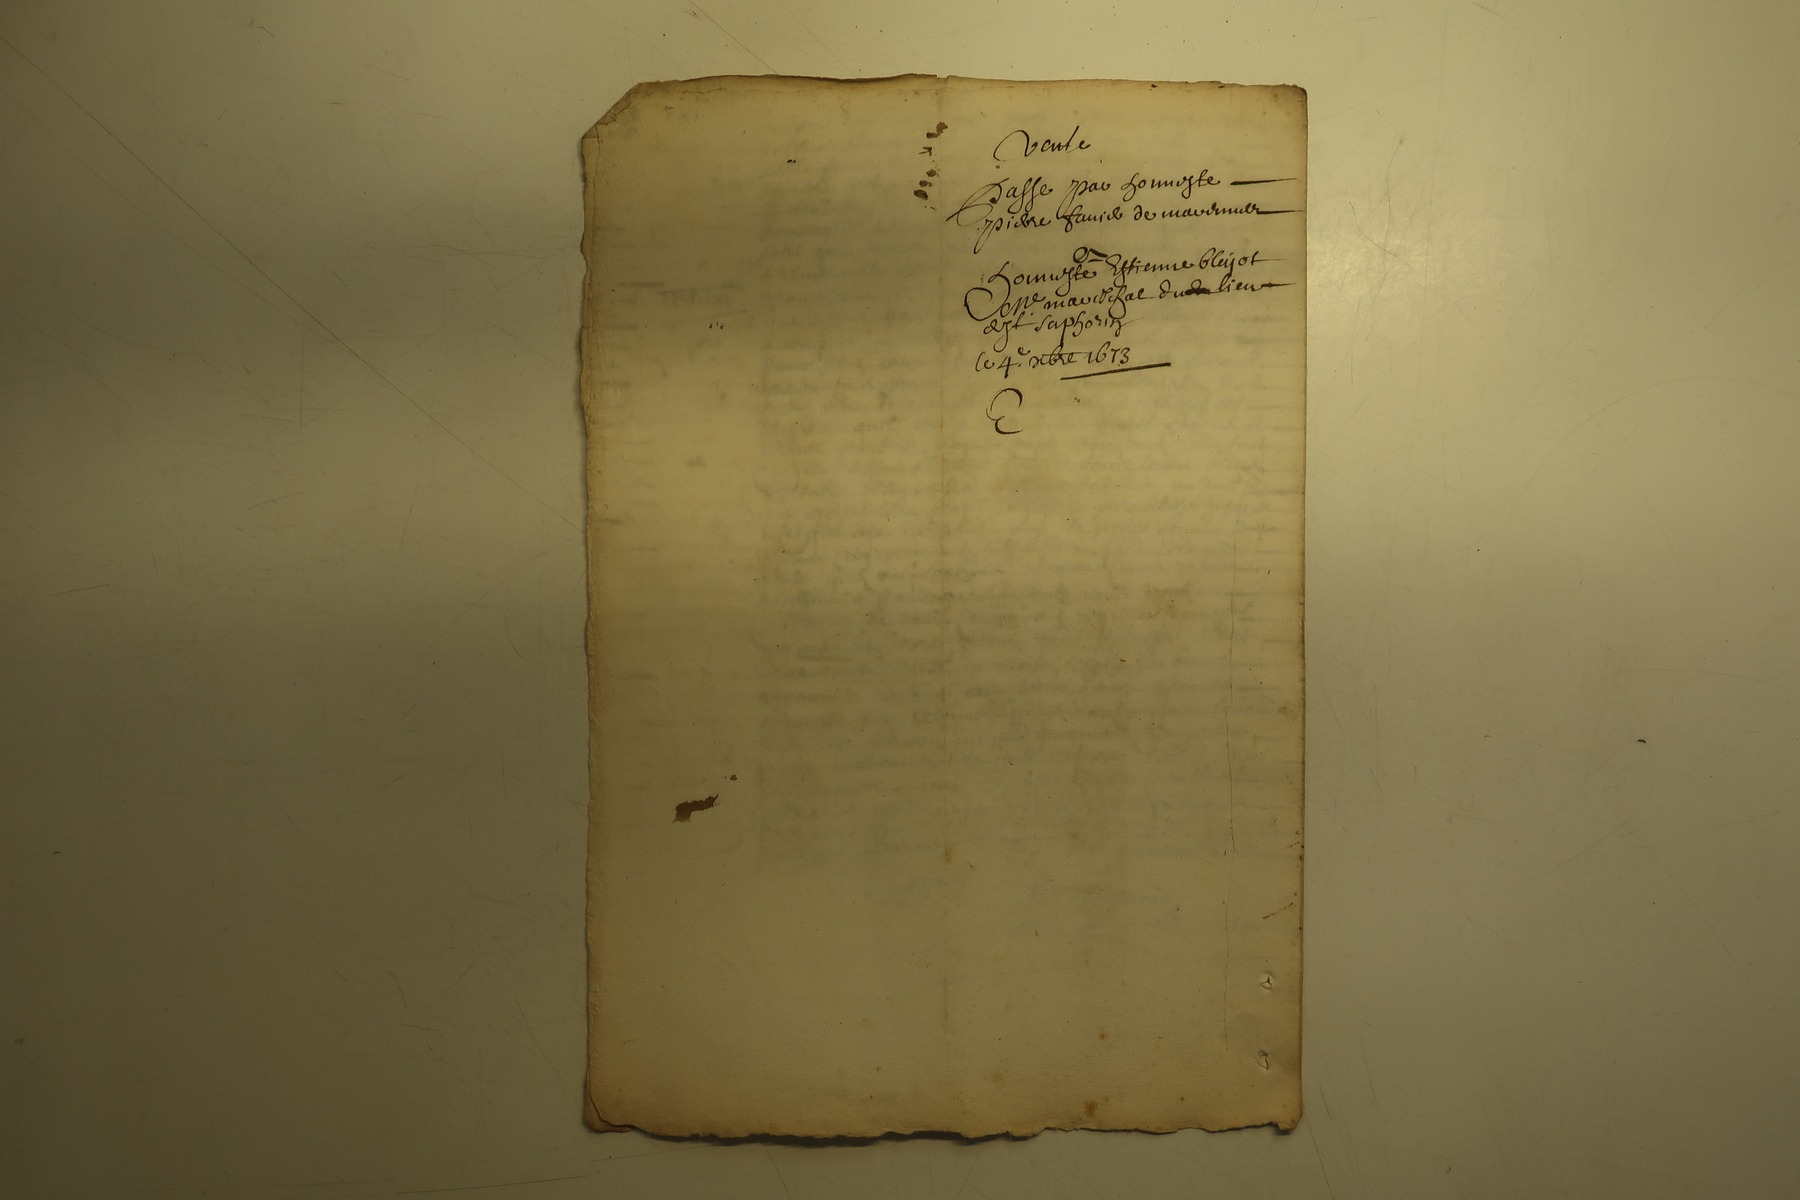 Vente
Passe par honneste
pierre fauier de
A
honneste Estienne bleyot
Me mareschal dud lieu
de st saphorin
le 4e xbre 1673